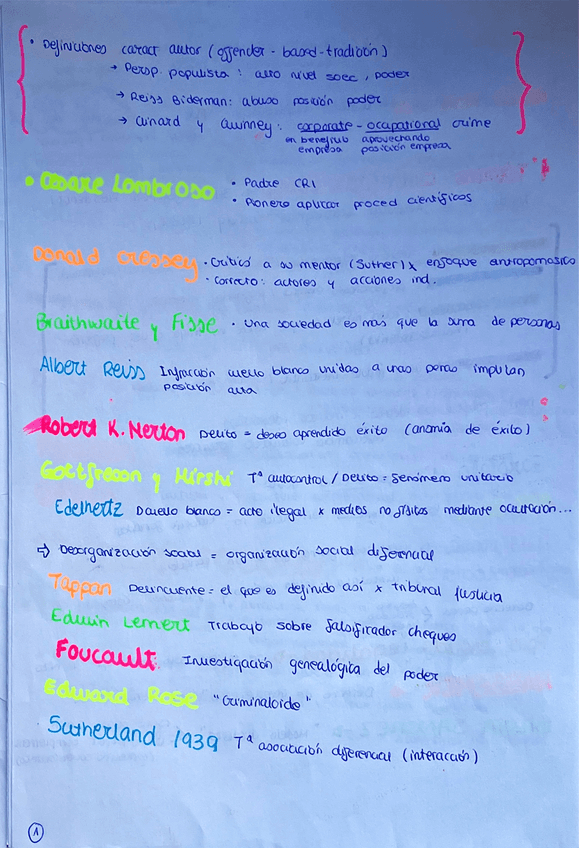 • Definiciones caract autor (offender - based - tradición)
→ Persp. populista: alto nivel soec, poder
→ Reiss Biderman: abuso posición poder
→ Clinard y Quinney: corporate - ocupational crime
en beneficio aprovechando
empresa posición empresa
• Cesare Lombroso • Padre CRI
• Pionero aplicar proced científicos
Donald Cressey • Criticó a su mentor (Suther) x enfoque antropomósico
• Correcto: actores y acciones ind.
Braithwaite y Fisse • Una sociedad es más que la suma de personas
Albert Reiss Infracción cuello blanco unidas a unas penas impulan
posición alta
Robert K. Merton Delito = deseo aprendido éxito (anomía de éxito)
Gottfredson y Hirshi Tª autocontrol / Delito = fenómeno unitario
Edelhertz Dcuello blanco = acto ilegal x medios no físitos mediante ocultación...
⇒ Desorganización social = organización social diferencial
Tappan Delincuente = el que es definido así x tribunal justicia
Edwin Lemert Trabajo sobre falsificador cheques
Foucault: Investigación genealógica del poder
Edward Rose "Criminaloide"
Sutherland 1939 Tª asociación diferencial (interacción)
1